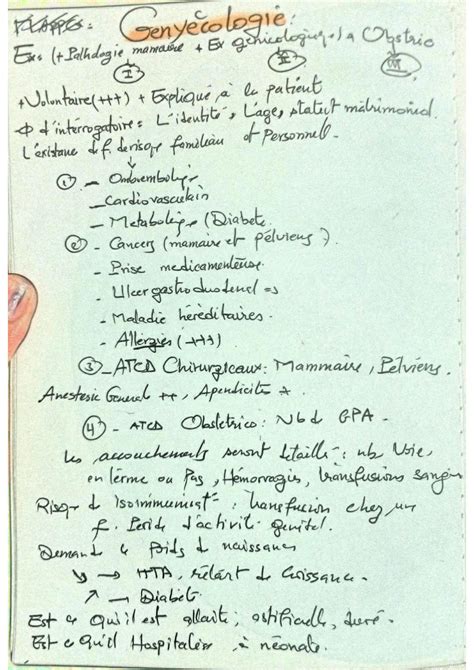 Genyécologie:
Exs (+ Pathologie mammaire + Ex génicologique + Obstric
I II III
+ Volontaire (+++) + Expliqué à le patient
Φ d'interrogatoire = L'identité, L'age, statuet matrimonial.
L'existance d f. de risque familiau et Personnell.
① - 
- Cardiovasculair
- Metabolique (Diabete
② - Cancers (mamaire et pélviens).
- Prise medicamenteuse.
- Ulcer gastro duodenel =s
- Maladie héréditaires.
- Allergies (+++)
③ - ATCD Chirurgicaux: Mammaire, Pelviens.
Anestesie General ++, Apendicite
④ - ATCD Obstetrico: Nb d GPA.
Les accouchements seront détaillé: nb Voie,
en terme ou Pas, Hémorragie, transfusions sanguin
Risque de : transfusion chez un
f. Periode d'activité genitel.
Demande le Poids de naissance
↘ → HTA, retart de Croissance.
↗ - Diabete
Est ce qu'il est allaité; artificielle,
Est ce qu'il Hospitalisé à néonate.